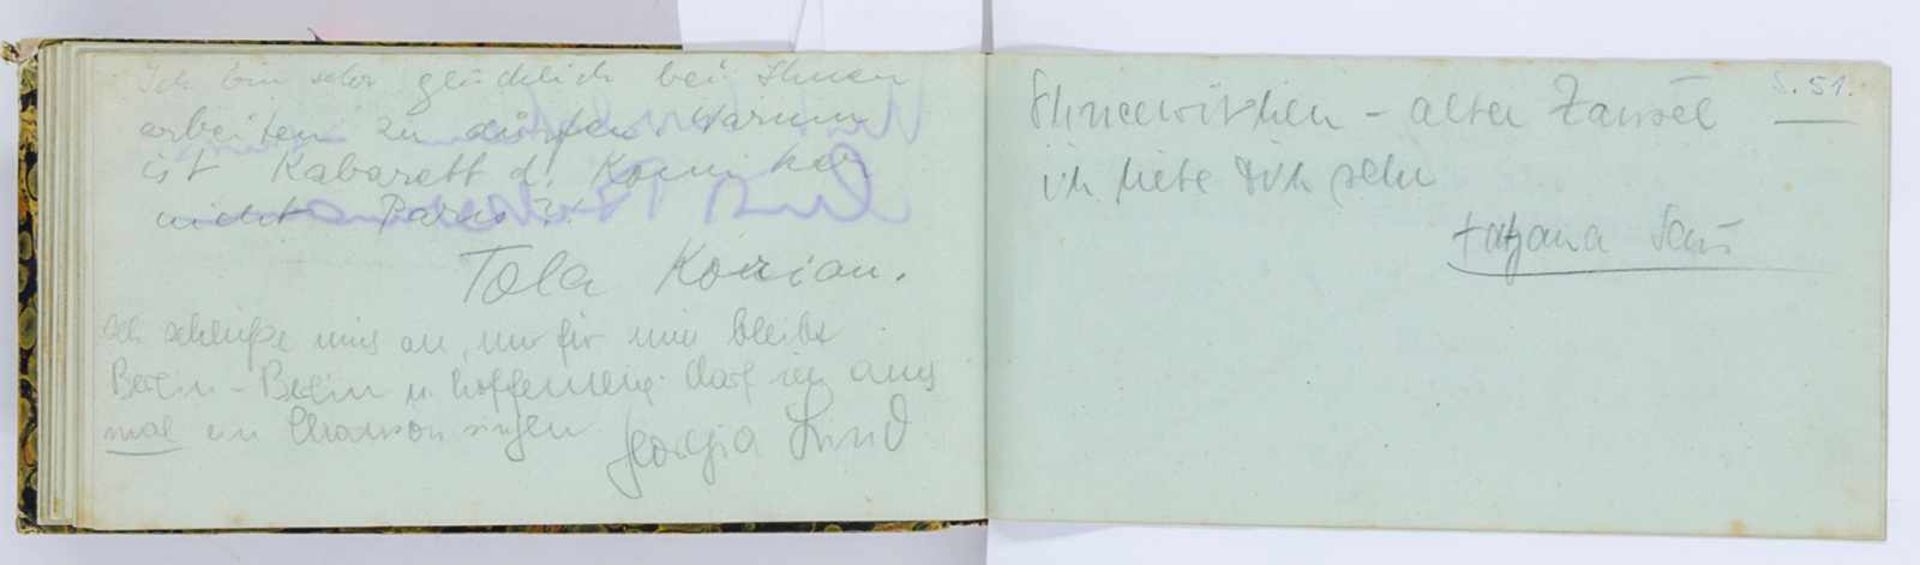 Ich bin sehr glücklich bei Ihnen
arbeiten zu dürfen. Warum
ist Kabarett d. Komiker
nicht Paris?!
Tola Korian.
Ich schließe mich an, nur für mich bleibt
Berlin - Berlin u. hoffentlich darf ich auch
mal ein Chanson singen
Georgia Lind
S. 51.
Schneewittchen - alter Zausel
ich liebe Dich sehr
Tatjana Sais